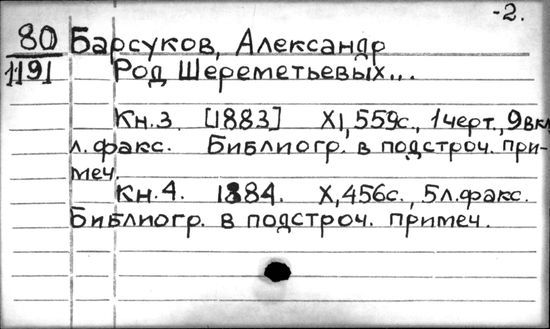 -2.
80 Барсуков, Александр
1191 Род Шереметьевых...
Кн.3. [1883] XI, 559с., 1черт., 9вкл
л. факс. Библиогр. в подстроч. при-
меч.
Кн.4. 1884. X, 456с., 5л.факс.
Библиогр. в подстроч. примеч.